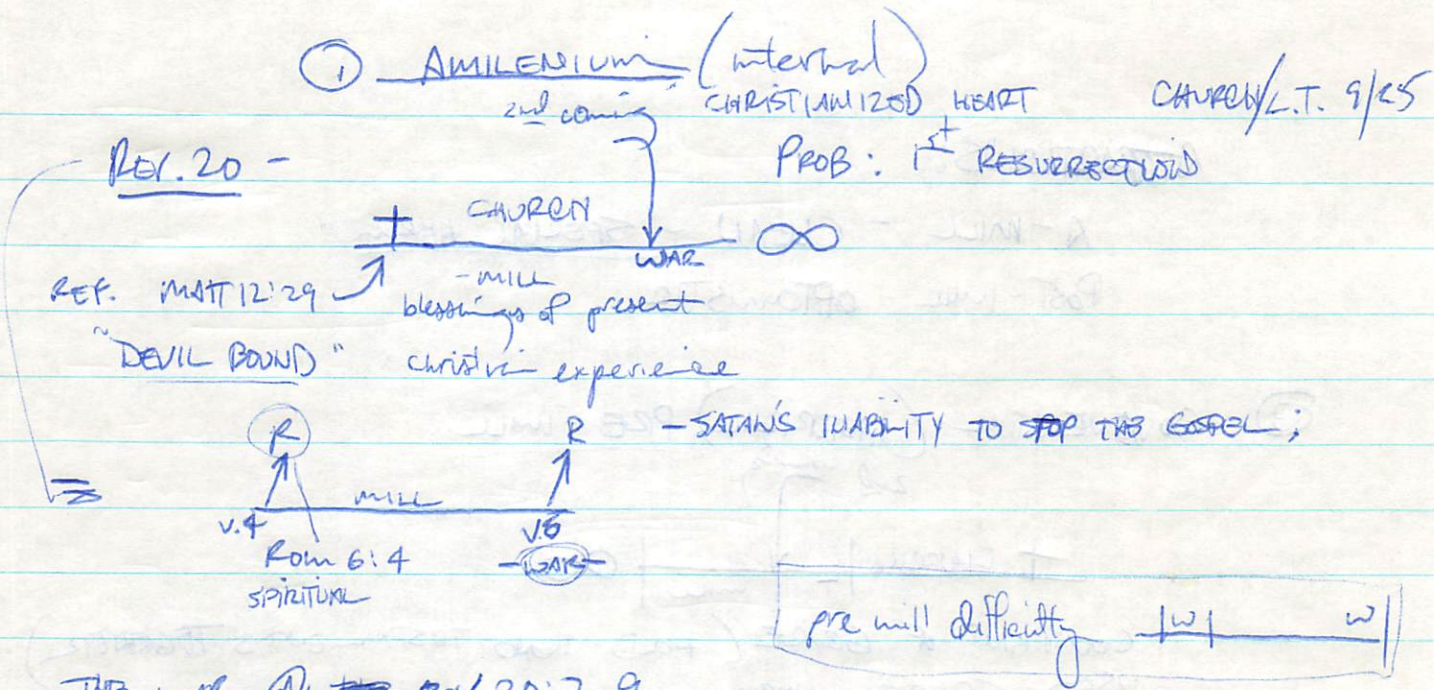 ① AMILENIUM (internal)
2nd coming CHRISTIANIZED HEART CHURCH/L.T. 9/25
REV. 20 - PROB: 1st RESURRECTION
CHURCH
WAR ∞
REF. MATT 12:29 - MILL
blessings of present
"DEVIL BOUND" christian experience
R R - SATAN'S INABILITY TO STOP THE GOSPEL;
MILL
v.4 v.5
Rom 6:4 - WAR -
SPIRITUAL
pre mill difficulty W W
REV 20:7-9